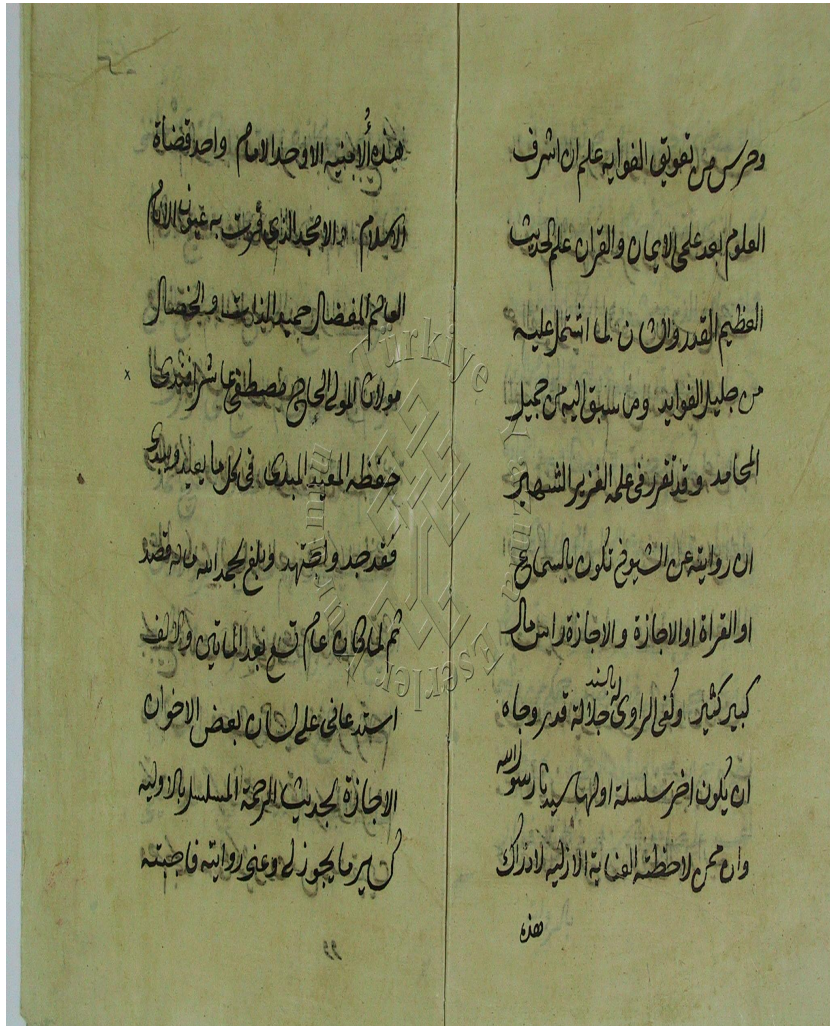 وحرس من تفويق الغوايه علم ان اشرف
العلوم بعد علمى الايمان والقران علم الحديث
العظيم القدر والشان لما اشتمل عليه
من جليل الفوايد وما سبق اليه من جميل
المحامد وقد تقرر فى علمه الغزير الشهير
ان روايته عن الشيوخ تكون بالسماع
او القراة او الاجازة والاجازة راس مال
كبير كثير وكفى الراوى له بالسند جلالة قدر وجاه
ان يكون اخر سلسلة اولها سيدنا رسول الله
وان ممن لاحظته العناية الازليه لادراك
هذه
هذه الامنيه الاوحد الامام واحد قضاة
الاسلام والامجد الذى قرت به عيون الانام
العالم المفضال جميع الذات والخصال
مولانا المولى الحاج مصطفى عاشر افندى
حفظه المعيد المبدى فى كل ما يعيد ويبدى
فقد جد واجتهد وبلغ بحمد الله ما له قصد
ثم لما كان عام تسع بعد الماتين والالف
استدعانى على لسان بعض الاخوان
الاجازة بحديث الرحمة المسلسل بالاوليه
كساير ما يجوز لى وعنى روايته فاجبته
Türkiye Yazma Eserler Kurumu